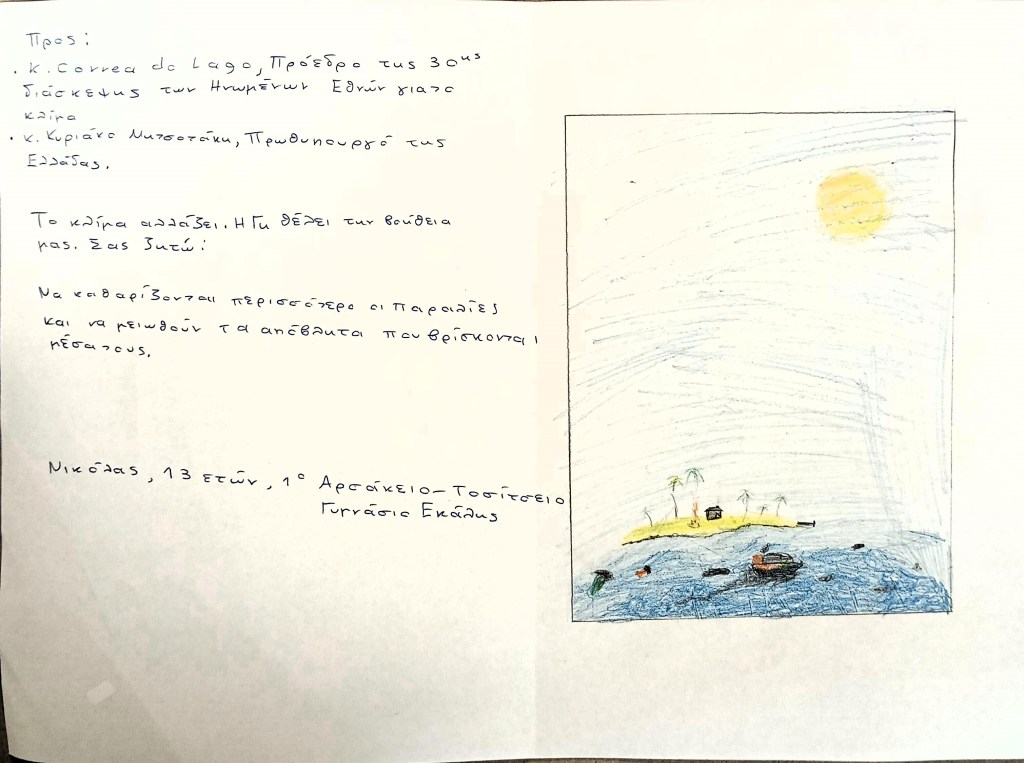 Προς:
• κ. Correa do Lago, Πρόεδρο της 30κης
διάσκεψης των Ηνωμένων Εθνών για το
κλίμα
• κ. Κυριάκο Μητσοτάκη, Πρωθυπουργό της
Ελλάδας.
Το κλίμα αλλάζει. Η Γη θέλει την βοήθεια
μας. Σας ζητώ:
Να καθαρίζονται περισσότερο οι παραλίες
και να μειωθούν τα απόβλητα που βρίσκονται
μέσα τους.
Νικόλας, 13 ετών, 1ο Αρσάκειο-Τοσίτσειο
Γυμνάσιο Εκάλης